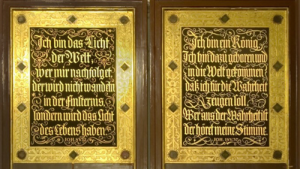 Ich bin das Licht
der Welt,
wer mir nachfolget,
der wird nicht wandeln
in der Finsternis,
sondern wird das Licht
des Lebens haben.
Ich bin ein König,
Ich bin dazu geboren und
in die Welt gekommen,
daß ich für die Wahrheit
zeugen soll.
Wer aus der Wahrheit ist
der höret meine Stimme.